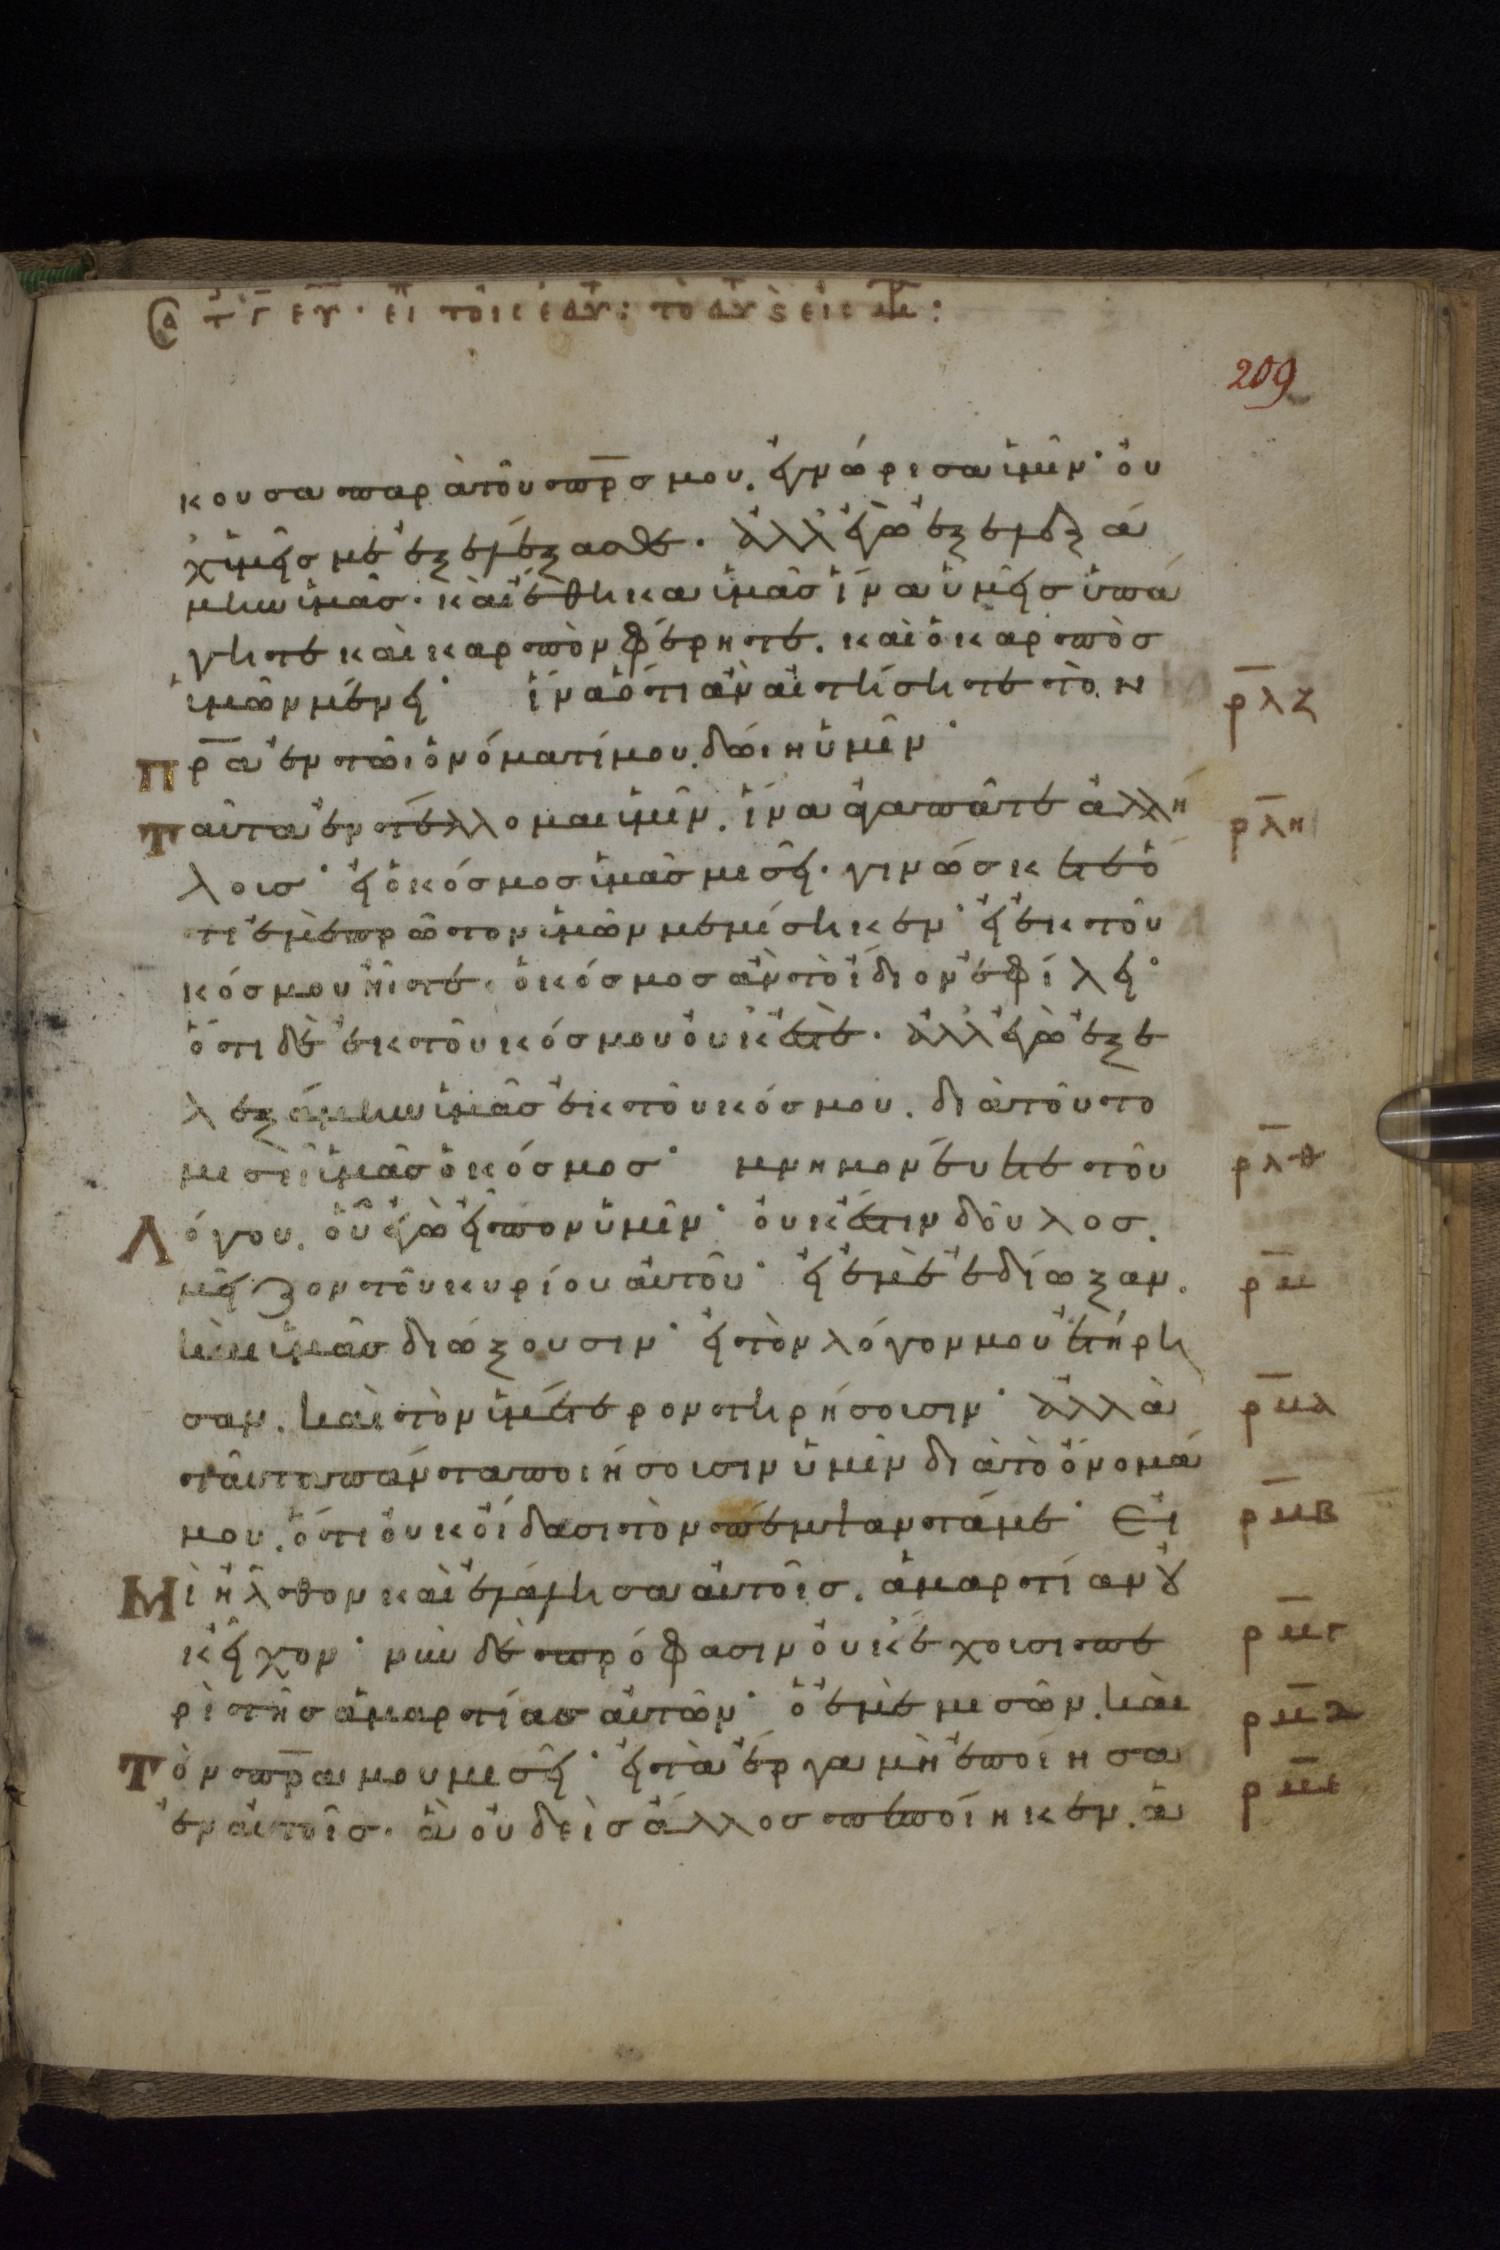 209
κουσα παρὰ τοῦ πρ̅σ μου. ἐγνώρισα ὑμῖν· οὐ
χ ὑμεῖς με ἐξελέξασθε. ἀλλ' ἐγὼ ἐξελεξά
μην ὑμᾶς. καὶ ἔθηκα ὑμᾶς ἵνα ὑμεῖς ὑπά
γητε καὶ καρπὸν φέρητε. καὶ ὁ καρπὸς
ὑμῶν μένει· ἵνα ὅτι ἂν αἰτήσητε τὸν ρλ̅ζ
Πρ̅α ἐν τῶι ὀνόματί μου. δώιη ὑμῖν·
Ταῦτα ἐντέλλομαι ὑμῖν. ἵνα ἀγαπᾶτε ἀλλή ρλ̅η
λοις· εἰ ὁ κόσμος ὑμᾶς μισεῖ. γινώσκετε ὅ
τι ἐμὲ πρῶτον ὑμῶν μεμίσηκεν· εἰ ἐκ τοῦ
κόσμου ἦτε. ὁ κόσμος ἂν τὸ ἴδιον ἐφίλει·
ὅτι δὲ ἐκ τοῦ κόσμου οὐκ ἐστὲ. ἀλλ' ἐγὼ ἐξε
λεξάμην ὑμᾶς ἐκ τοῦ κόσμου. διὰ τοῦτο
μισεῖ ὑμᾶς ὁ κόσμος· μνημονεύετε τοῦ ρλ̅θ
Λόγου. οὗ ἐγὼ εἶπον ὑμῖν· οὐκ ἔστιν δοῦλος.
μεῖζον τοῦ κυρίου αὐτοῦ· εἰ ἐμὲ ἐδίωξαν. ρ̅μ
καὶ ὑμᾶς διώξουσιν· εἰ τὸν λόγον μου ἐτήρη
σαν. καὶ τὸν ὑμέτερον τηρήσουσιν· ἀλλὰ ρμ̅α
ταῦτα πάντα ποιήσουσιν ὑμῖν διὰ τὸ ὄνομά
μου. ὅτι οὐκ οἴδασι τὸν πέμψαντά με· Εἰ ρμ̅β
Μὶ ἦλθον καὶ ἐλάλησα αὐτοῖς. ἁμαρτίαν οὐ
κ εἶχον· νῦν δὲ πρόφασιν οὐκ ἔχουσι πε ρμ̅γ
ρὶ τῆς ἁμαρτίας αὐτῶν· ὁ ἐμὲ μισῶν. καὶ ρμ̅δ
Τὸν πρ̅α μου μισεῖ· εἰ τὰ ἔργα μὴ ἐποίησα ρμ̅ε
ἐν αὐτοῖς. ἃ οὐδεὶς ἄλλος πεποίηκεν. ἁ